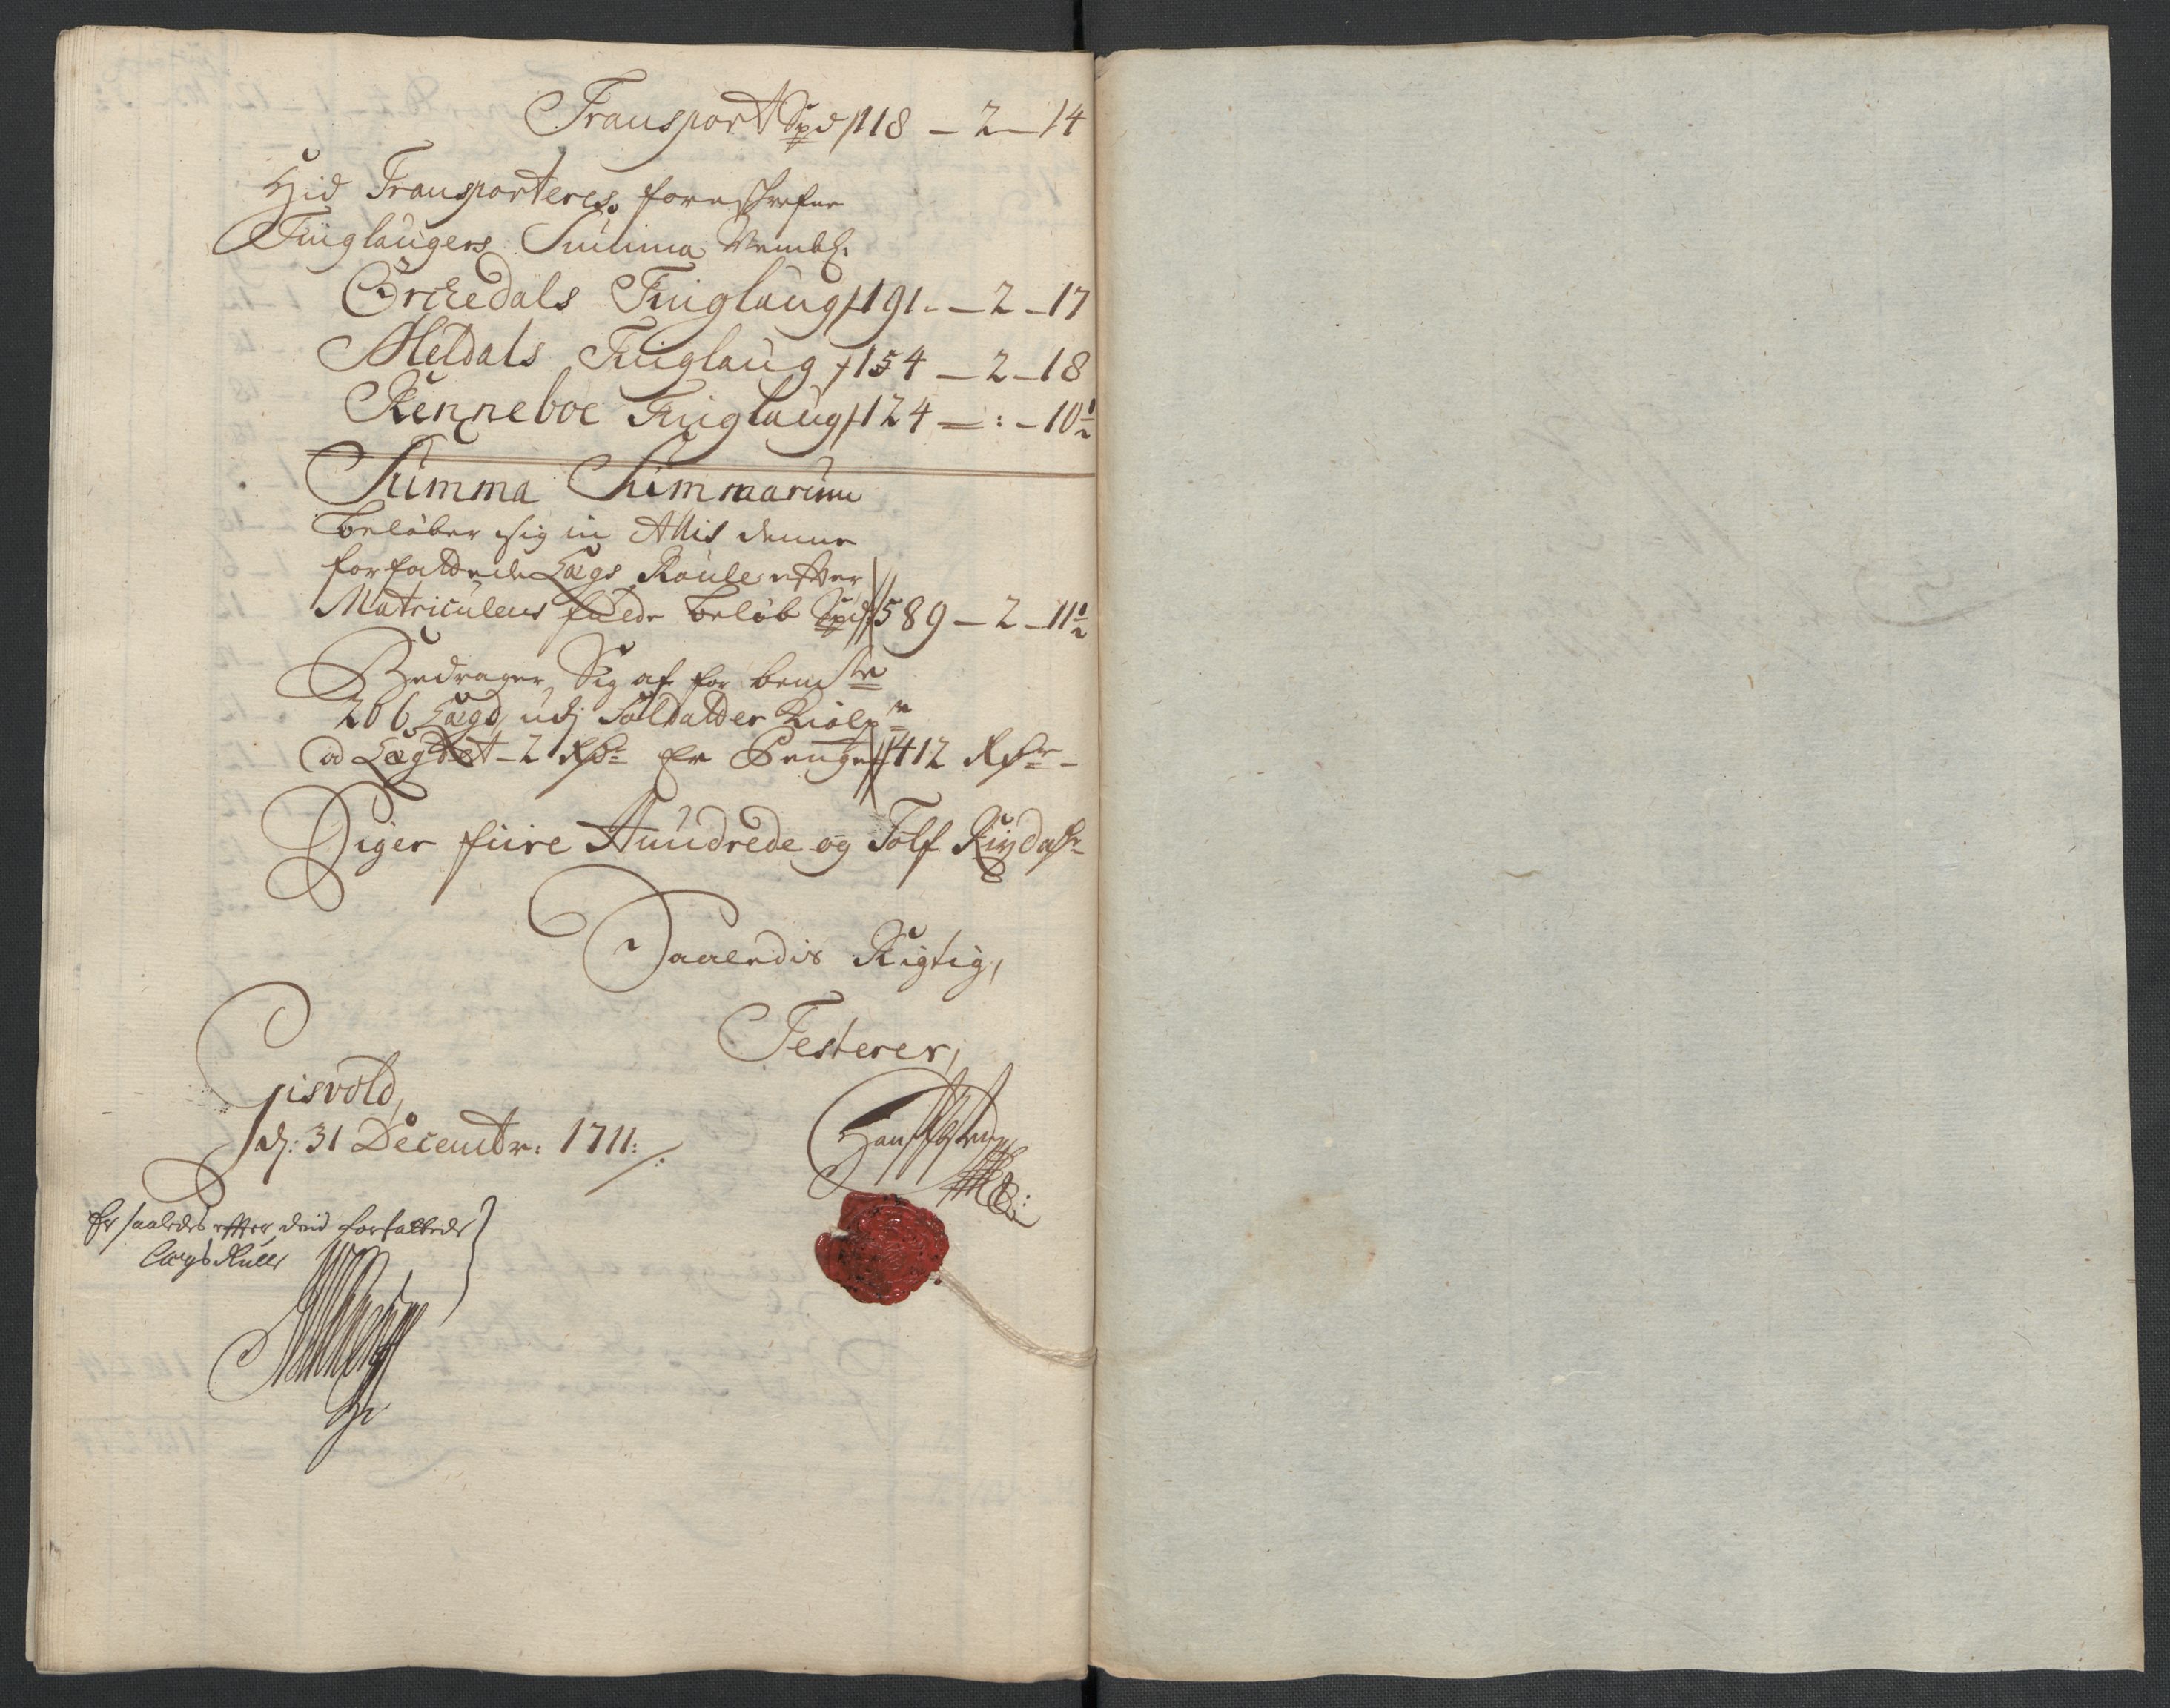 Transport Spd 118 - 2 - 14
Hid Transporteres foreschrefne
Tinglaugers Summa Nembl.
Orchedals Tinglaug 191. - 2 - 17
Meldals Tinglaug 154 - 2 - 18
Renneboe Tinglaug 124 - : - 10½
Summa Summarum
beløber sig in Allis denne
forfattede Lægs Roule efter
Matriculens fulde beløb Spd 589 - 2 - 11½
Bedrager Sig af for bemte
206 Lægd udj Soldatter
a Lægdet - 2 Rdr Er Penge 412 Rdr -
Siger fiire Hundrede og Tolf Rixdar
Saaledis Rigtig,
Testerer,
Gisvold,
d: 31 Decembr: 1711:
Er saaledes effter dend forfattede
Lægs Rulle